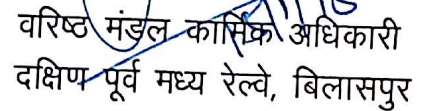 वरिष्ठ मंडल कार्मिक अधिकारी
दक्षिण पूर्व मध्य रेल्वे, बिलासपुर